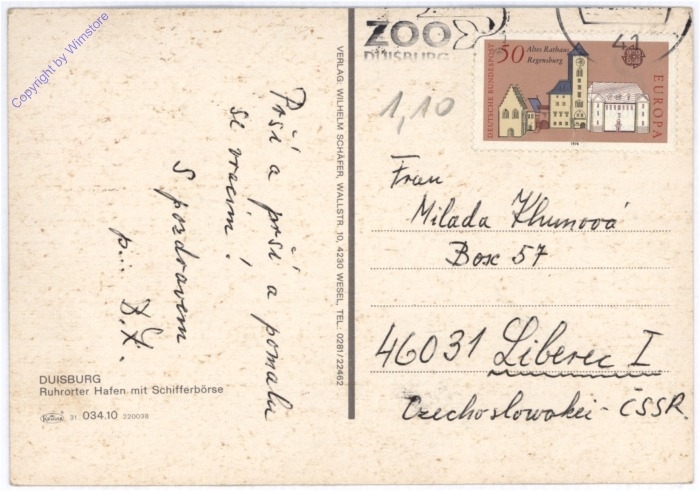 Copyright by Wimstore
ZOO
DUISBURG
41
50 Altes Rathaus
Regensburg
DEUTSCHE BUNDESPOST
EUROPA
1978
1,10
Prší a prší a pomalu
se vracím!
S pozdravem
VERLAG: WILHELM SCHÄFER, WALLSTR. 10, 4230 WESEL, TEL.: 0281/22462
Frau
Milada Khunová
Box 57
46031 Liberec I
Czechoslowakei - ČSSR.
DUISBURG
Ruhrorter Hafen mit Schifferbörse
Krüger 31 034.10 220038